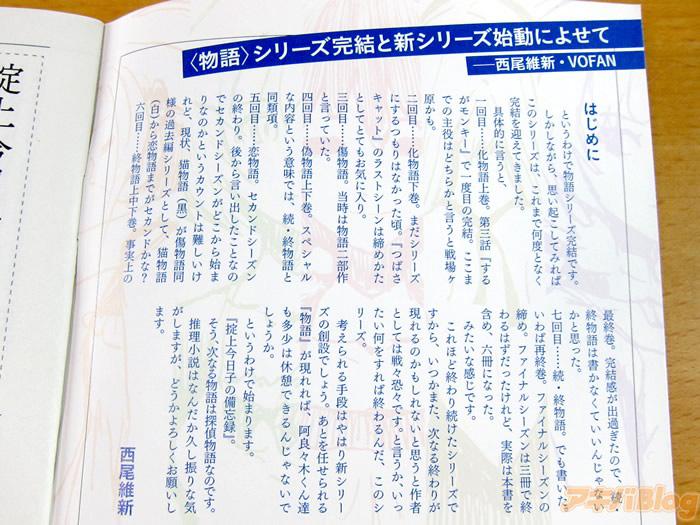 〈物語〉シリーズ完結と新シリーズ始動によせて
――西尾維新・VOFAN
はじめに
というわけで物語シリーズ完結です。
しかしながら、思い起こしてみれば
このシリーズは、これまで何度となく
完結を迎えてきました。
具体的に言うと、
一回目……化物語上巻。第三話『する
がモンキー』で一度目の完結。ここま
での主役はどちらかと言うと戦場ヶ
原かも。
二回目……化物語下巻。まだシリーズ
にするつもりはなかった頃。『つばさ
キャット』のラストシーンは締めかた
としてとてもお気に入り。
三回目……傷物語。当時は物語二部作
と言っていた。
四回目……偽物語上下巻。スペシャル
な内容という意味では、続・終物語と
同類項。
五回目……恋物語。セカンドシーズン
の終わり。後から言い出したことなの
でセカンドシーズンがどこから始ま
りなのかというカウントは難しいけ
れど、現状、猫物語（黒）が傷物語同
様の過去編シリーズとして、猫物語
（白）から恋物語までがセカンドかな？
六回目……終物語上中下巻。事実上の
最終巻。完結感が出過ぎたので、続・
終物語は書かなくていいんじゃない
かと思った。
七回目……続・終物語。でも書いた。
いわば再終巻。ファイナルシーズンの
締め。ファイナルシーズンは三冊で終
わるはずだったけれど、実際は本書を
含め、六冊になった。
みたいな感じです。
これほど終わり続けたシリーズで
すから、いつかまた、次なる終わりが
現れるのかもしれないと思うと作者
としては戦々恐々です。と言うか、いっ
たい何をすれば終わるんだ、このシ
リーズ。
考えられる手段はやはり新シリー
ズの創設でしょう。あとを任せられる
『物語』が現れれば、阿良々木くん達
も多少は休憩できるんじゃないで
しょうか。
というわけで始まります。
『掟上今日子の備忘録』。
そう、次なる物は探偵物語なのです。
推理小説はなんだか久し振りな気
がしますが、どうかよろしくお願いし
ます。
西尾維新
掟上今
アキバBlog